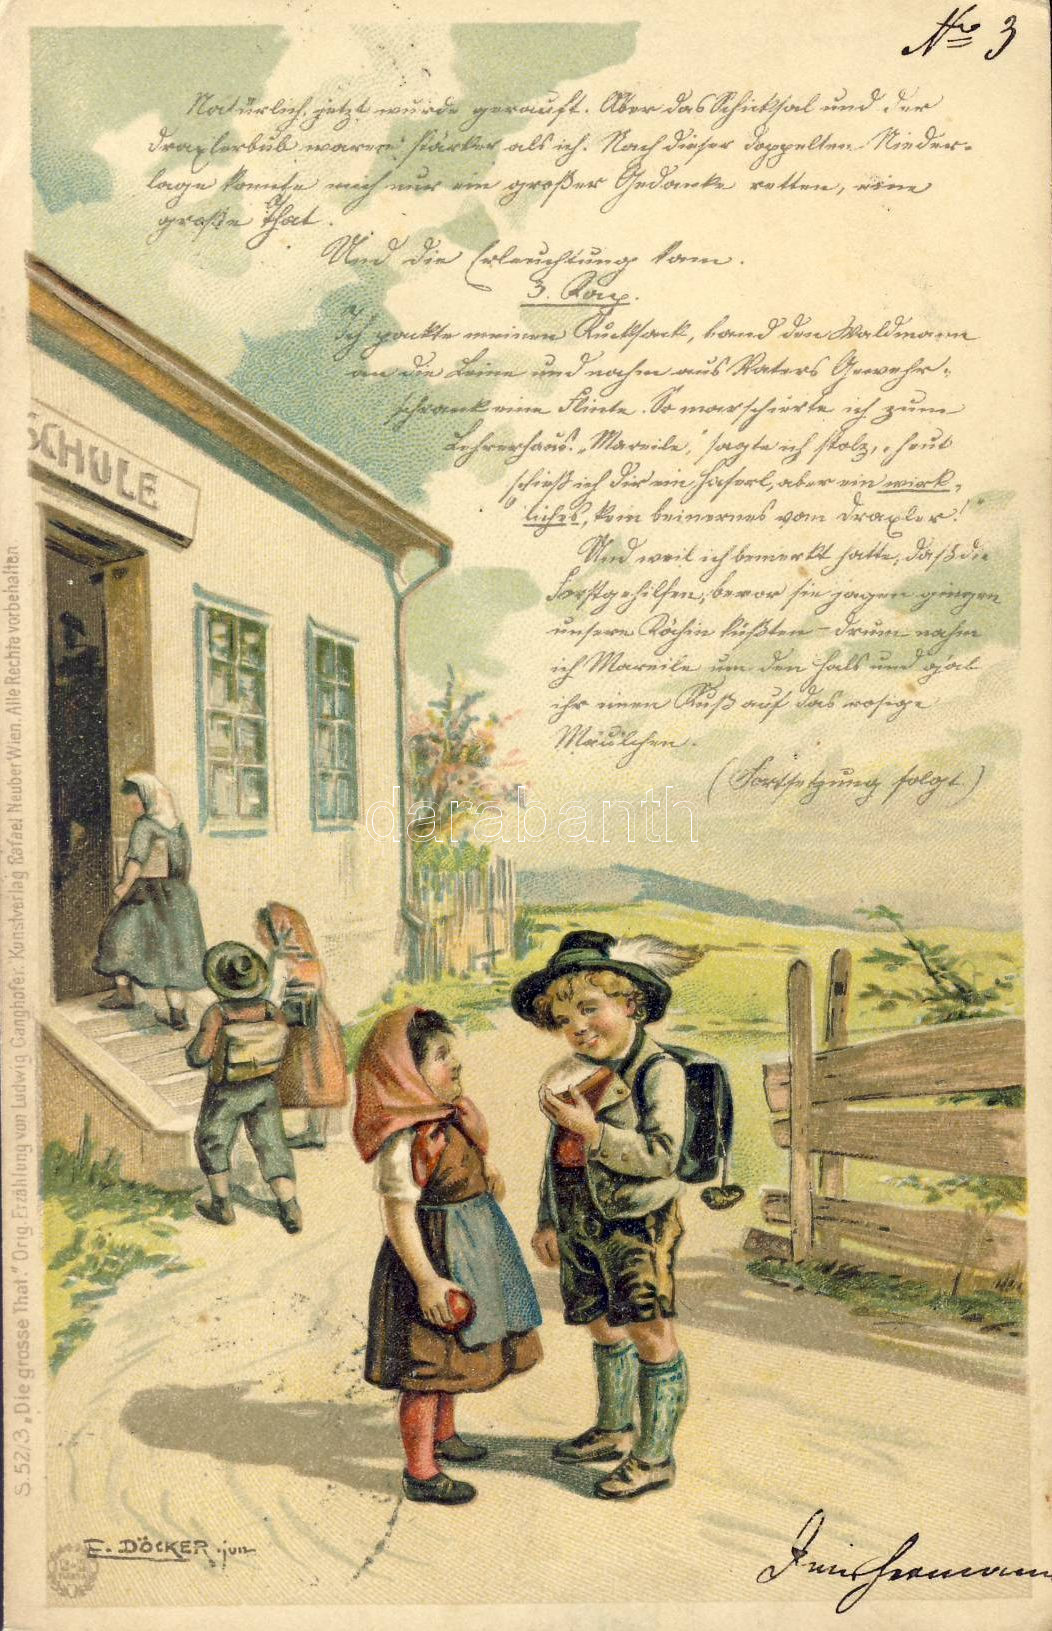 No 3
Natürlich, jetzt wurde gerauft. Aber das Schicksal und der
Draxlerbub waren stärker als ich. Nach dieser doppelten Nieder-
lage konnte mich nur ein großer Gedanke retten, eine
große That.
Und die Erleuchtung kam.
3. Kap.
Ich packte meinen Rucksack, band den Waldmann
an die Leine und nahm aus Vaters Gewehr-
schrank eine Flinte. So marschierte ich zum
Lehrerhaus. „Mareile," sagte ich stolz, „heut
schieß ich dir ein Haserl, aber ein wirk-
liches, kein beinernes vom Draxler!"
Und weil ich bemerkt hatte, daß die
Forstgehilfen, bevor sie jagen gingen
unsere Köchin küßten – drum nahm
ich Mareile um den Hals und gab
ihr einen Kuß auf das rosige
Mäulchen.
(Fortsetzung folgt.)
SCHULE
darabanth
S. 52/3 „Die grosse That." Orig. Erzählung von Ludwig Ganghofer. Kunstverlag Rafael Neuber Wien. Alle Rechte vorbehalten.
E. DÖCKER jun